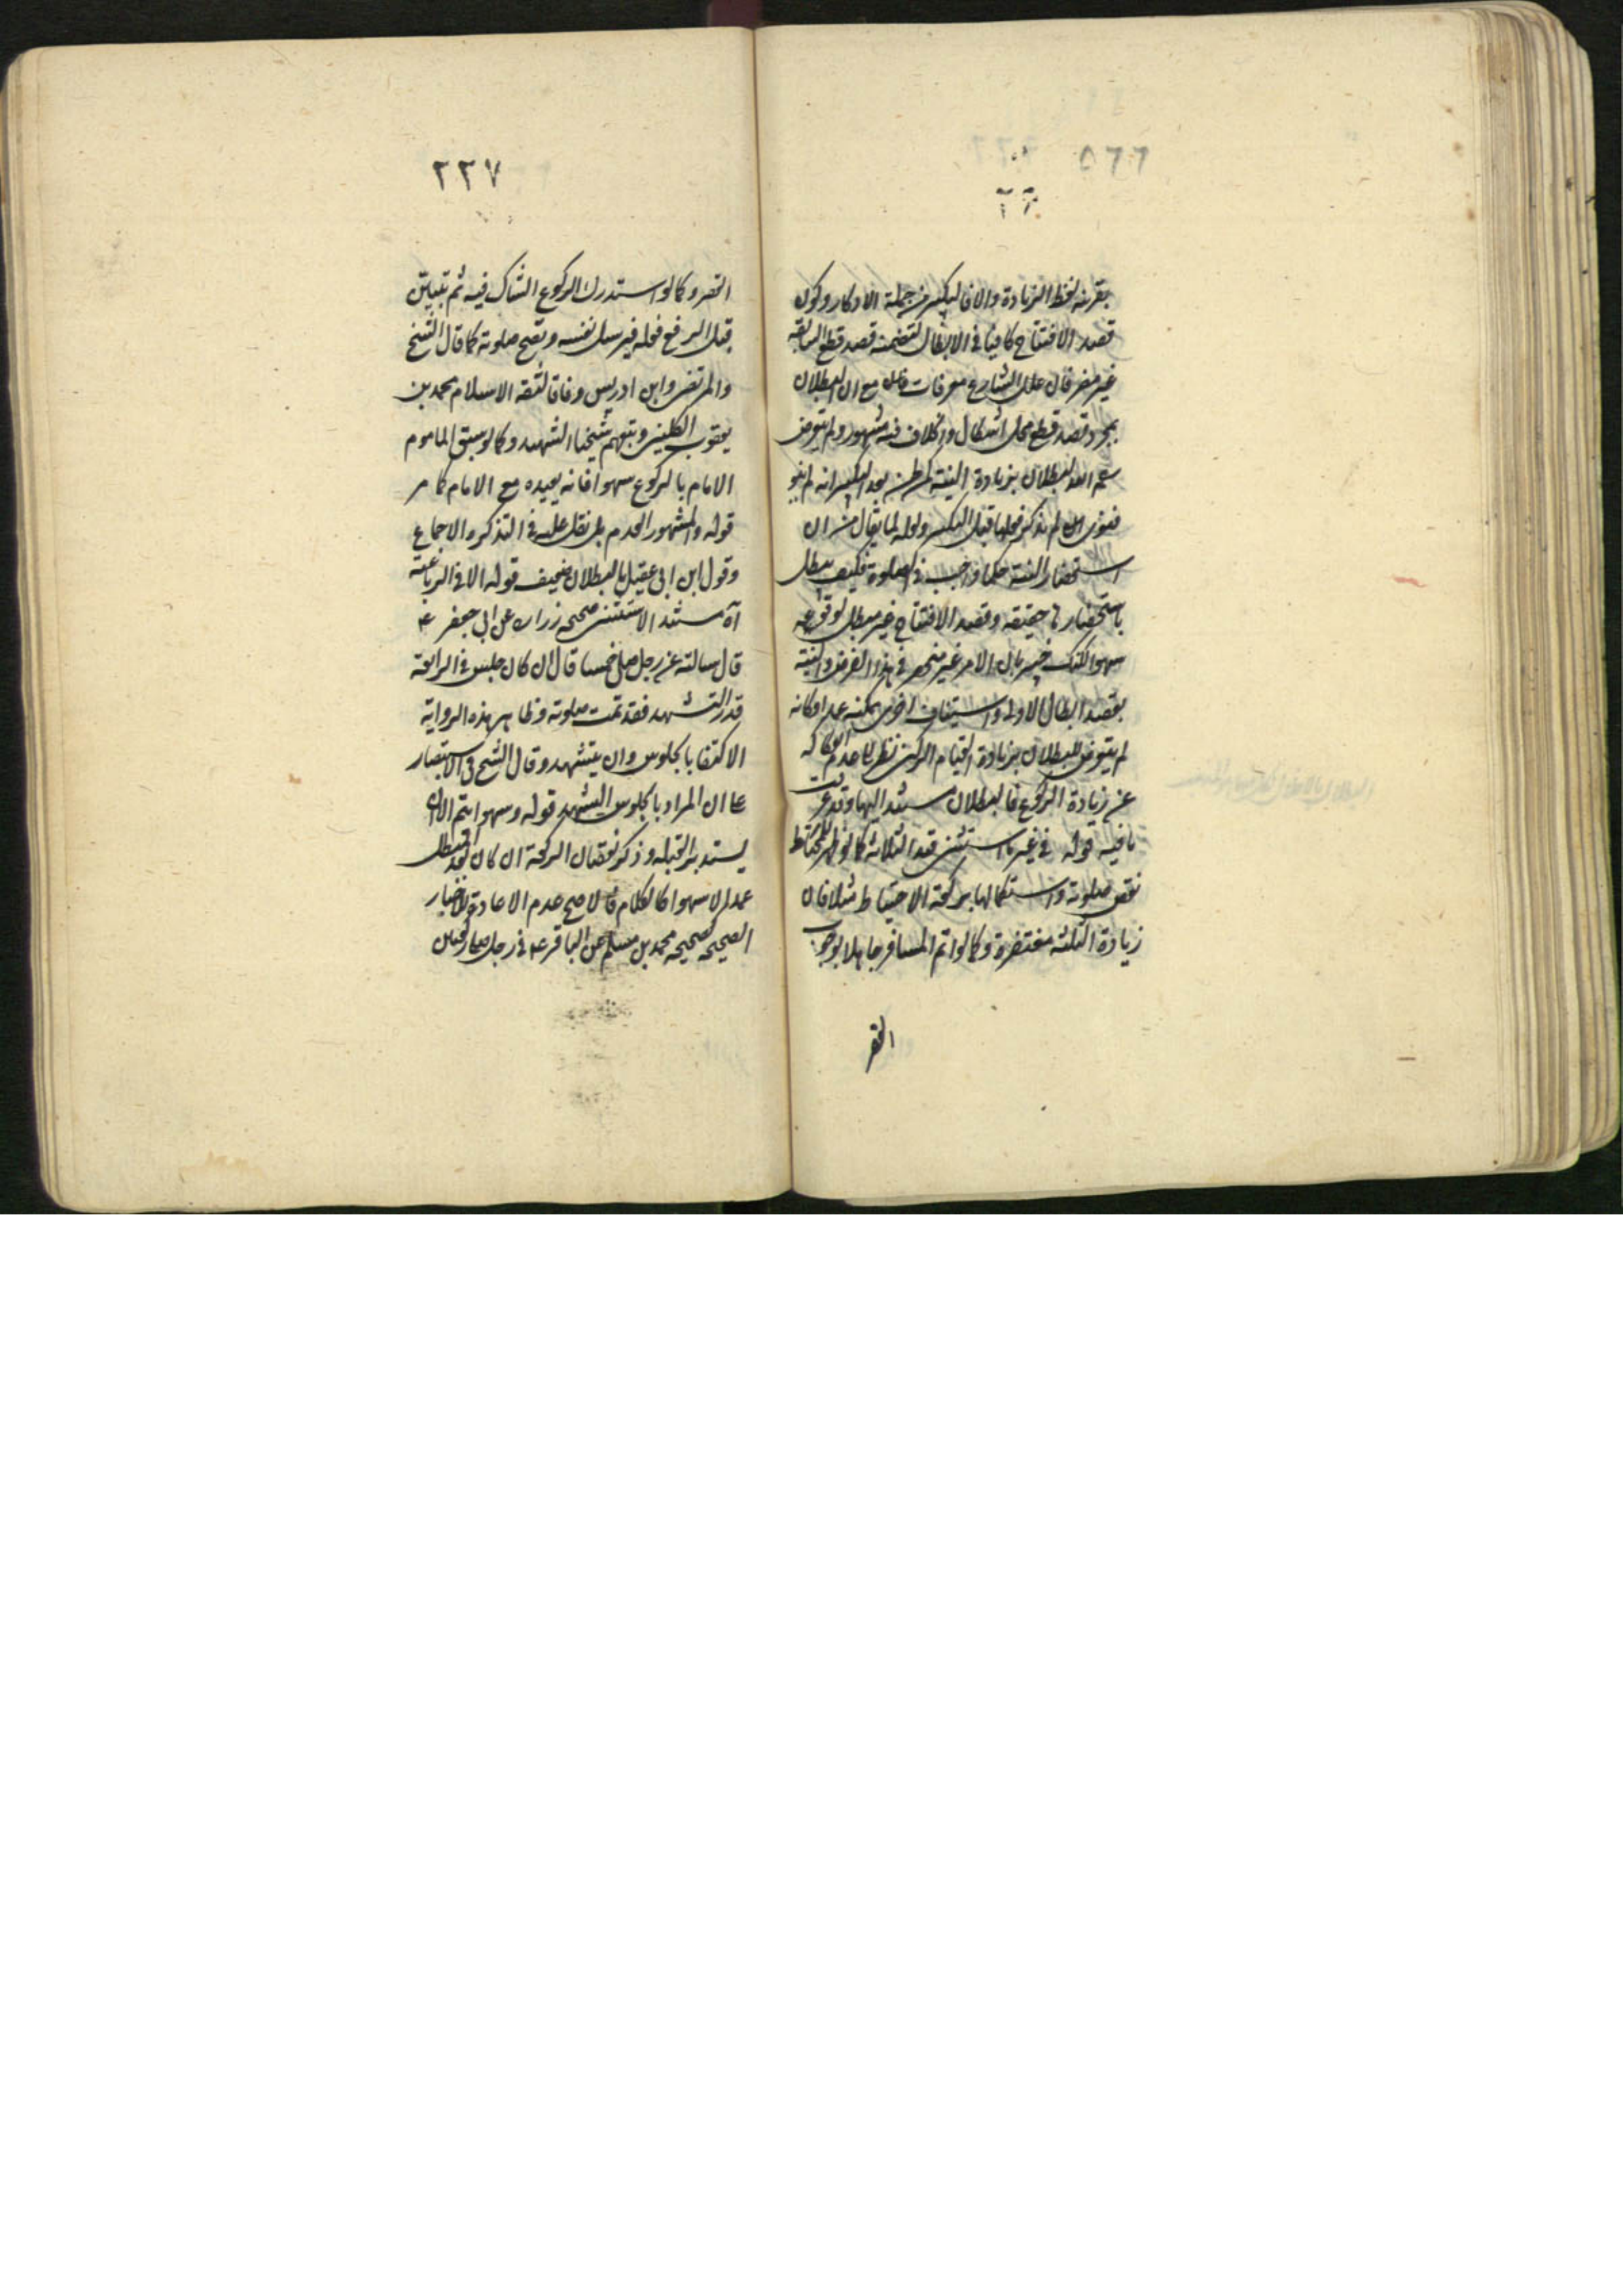 بقرينة لفظ الزيادة والا فالتكبير من جملة الاذكار وكون
قصد الافتتاح كافيا في الابطال لتضمنه قصد قطع السابقة
غير مضر فان علل الشارع معرفات مع ان البطلان
بمجرد قصد قطع محل اشكال والخلاف فيه مشهور ولم يتعرض
البطلان بزيادة النية كمن ظن بعد التكبير انه لم ينو
فنوى لم يذكر قبل التكبير ولعله لما يقال من ان
استحضار النية حكما واجب في الصلوة فكيف يبطل
باستحضارها حقيقة وقصد الافتتاح غير مبطل لوقوعه
سهوا لكنك خبير بان الامر غير منحصر في هذا الفرض والنية
بقصد ابطال الاولى واستيناف اخرى ممكنة عمدا وكانه
لم يتعرض للبطلان بزيادة القيام الركني نظرا الى عدم انفكاكه
عن زيادة الركوع فالبطلان مستند اليها وقد عرفت
ما فيه قوله في غير ما استثنى قيد الثلاثة كما لو ظهر للمحتاط
نقص صلوته واستكمالها بركعة الاحتياط مثلا فان
زيادة الثلثة مغتفرة وكما لو اتم المسافر جاهلا بوجوب
القصر
٢٢٧
القصر وكما لو استدرك الركوع الشاك فيه ثم تبين
قبل الرفع فعله فيرسل نفسه وتصح صلوته كما قال الشيخ
والمرتضى وابن ادريس وفاقا لثقة الاسلام محمد بن
يعقوب الكليني وتبعهم شيخنا الشهيد وكما لو سبق الماموم
الامام بالركوع سهوا فانه يعيده مع الامام كما مر
قوله والمشهور العدم بل نقل عليه في التذكره الاجماع
وقول ابن ابي عقيل بالبطلان ضعيف قوله الا في الرباعية
آه مستند الاستثنى صحيحه زراره عن ابي جعفر ع
قال سالته عن رجل صلى خمسا قال ان كان جلس في الرابعة
قدر التشهد فقد تمت صلوته وظاهر هذه الرواية
الاكتفا بالجلوس وان لم يتشهد وقال الشيخ في الاستبصار
ان المراد بالجلوس التشهد قوله وسهوا يتم
يستدبر القبله وذكر نقصان الركعة ان كان بعد المبطل
عمدا لا سهوا كالكلام فالاصح عدم الاعادة للاخبار
الصحيحه كصحيحه محمد بن مسلم عن الباقر ع في رجل صلى ركعتين